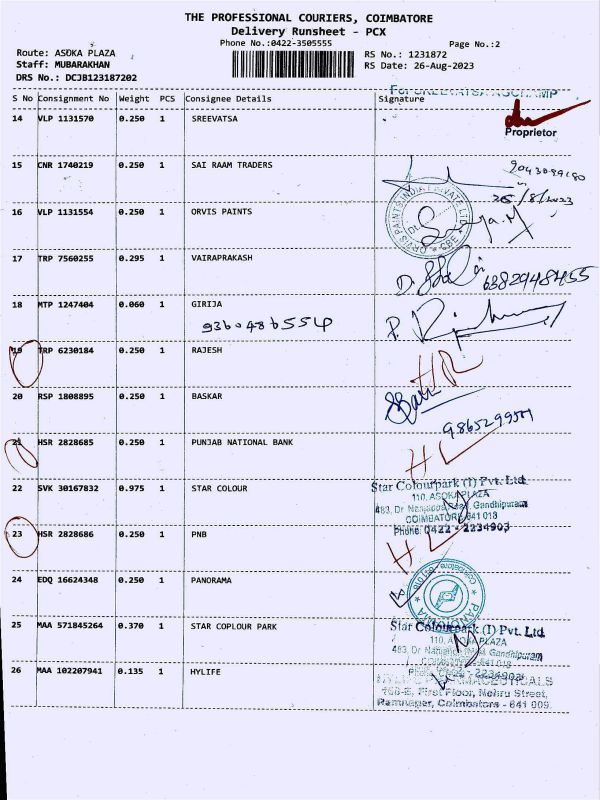 THE PROFESSIONAL COURIERS, COIMBATORE
Delivery Runsheet - PCX
Phone No.:0422-3505555
Page No.:2
Route: ASOKA PLAZA
RS No.: 1231872
Staff: MUBARAKHAN
RS Date: 26-Aug-2023
DRS No.: DCJB123187202
S No Consignment No Weight PCS Consignee Details Signature
14 VLP 1131570 0.250 1 SREEVATSA
Proprietor
15 CNR 1740219 0.250 1 SAI RAAM TRADERS
16 VLP 1131554 0.250 1 ORVIS PAINTS
ORVIS PAINTS INDIA PRIVATE LTD
CBE
17 TRP 7560255 0.295 1 VAIRAPRAKASH
6382948455
18 MTP 1247404 0.060 1 GIRIJA
9360486554
19 TRP 6230184 0.250 1 RAJESH
20 RSP 1808895 0.250 1 BASKAR
21 HSR 2828685 0.250 1 PUNJAB NATIONAL BANK
22 SVK 30167832 0.975 1 STAR COLOUR
Star Colourpark (I) Pvt. Ltd
110, ASOKA PLAZA
483, Dr Nanjappa Road, Gandhipuram
COIMBATORE-641 018
Phone: 0422 - 2234903
23 HSR 2828686 0.250 1 PNB
24 EDQ 16624348 0.250 1 PANORAMA
25 MAA 571845264 0.370 1 STAR COPLOUR PARK
Star Colourpark (I) Pvt. Ltd
110, ASOKA PLAZA
483, Dr Nanjappa Road, Gandhipuram
26 MAA 102207941 0.135 1 HYLIFE
First Floor, Nehru Street,
Ramnagar, Coimbatore - 641 009.